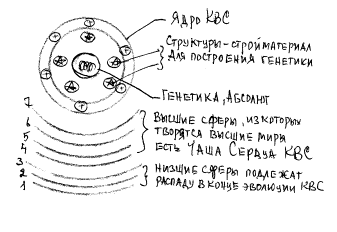 Ядро КВС
Структуры-стройматериал
для построения генетики
Генетика, Абсолют
Высшие сферы, из которых
творятся высшие миры
есть Чаша Сердца КВС
Низшие сферы подлежат
распаду в конце эволюции КВС
7
6
5
4
3
2
1